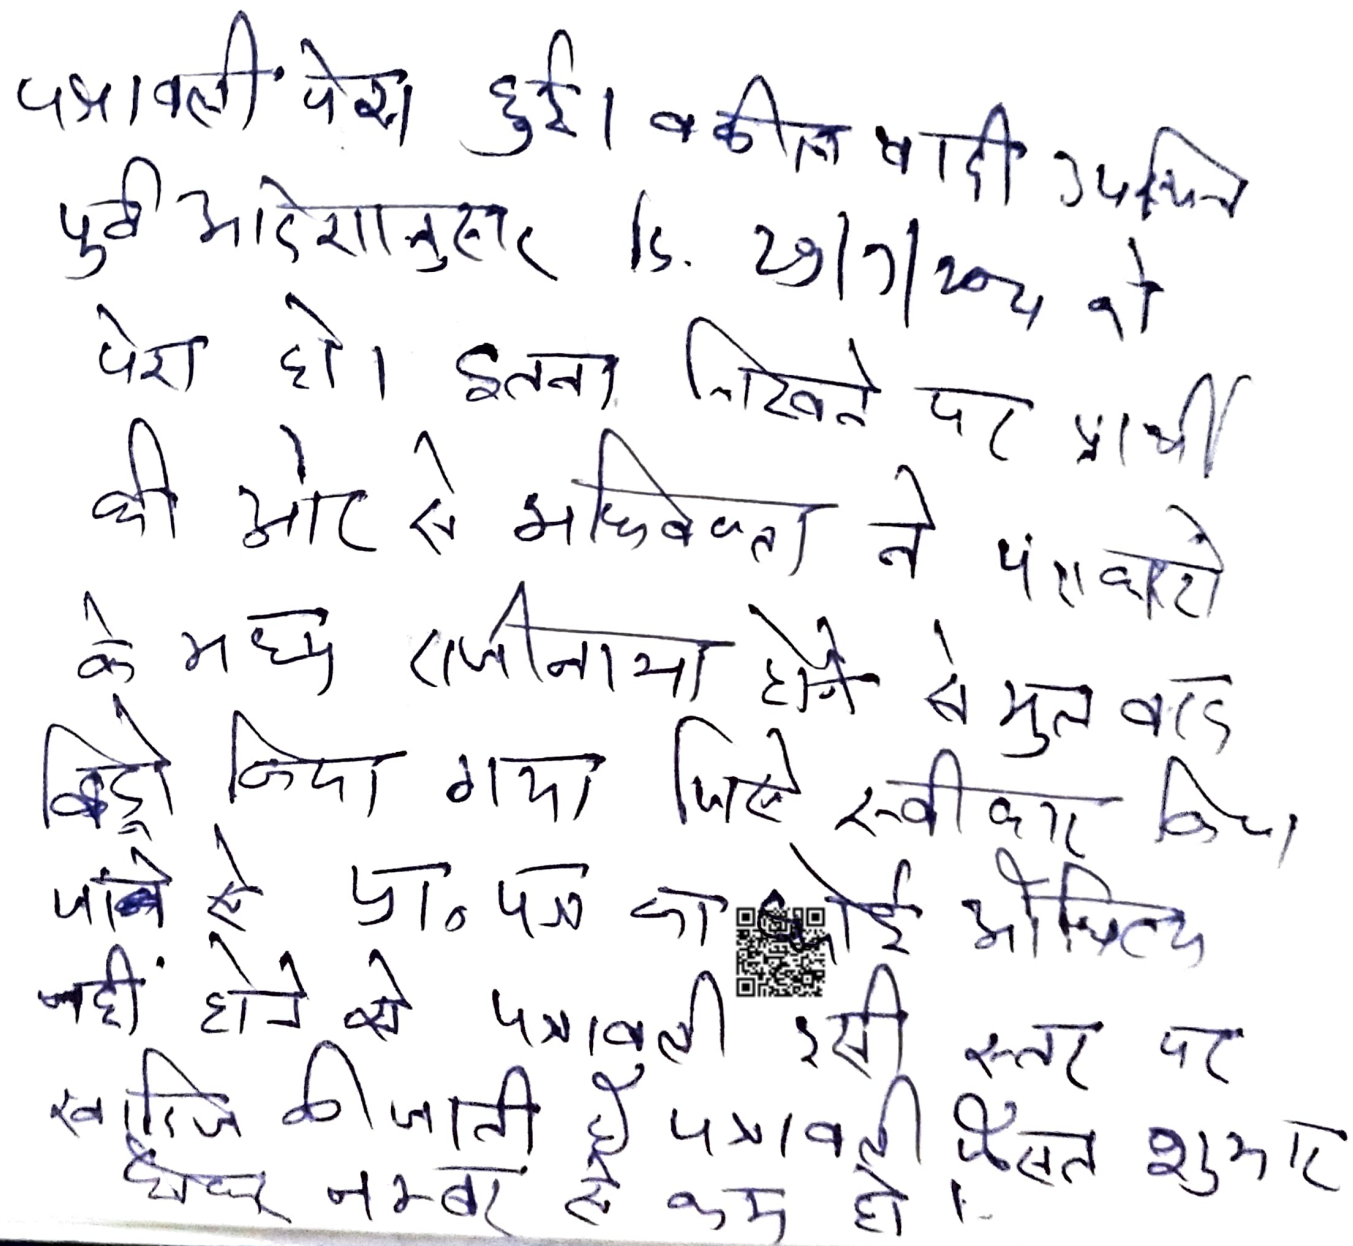 पत्रावली पेश हुई। वकील वादी उपस्थित
पुर्व आदेशानुसार दि. 29/7/2024 को
पेश हो। इतना लिखने पर प्रार्थी
की ओर से अधिवक्ता ने पक्षकारो
के मध्य राजीनामा होने से मुल वाद
विड्रो किया गया जिसे स्वीकार किया
जाने से प्रा. पत्र का कोई औचित्य
नहीं होने से पत्रावली इसी स्तर पर
खारिज की जाती है पत्रावली फैसल शुमार
होकर नम्बर से कम हो।